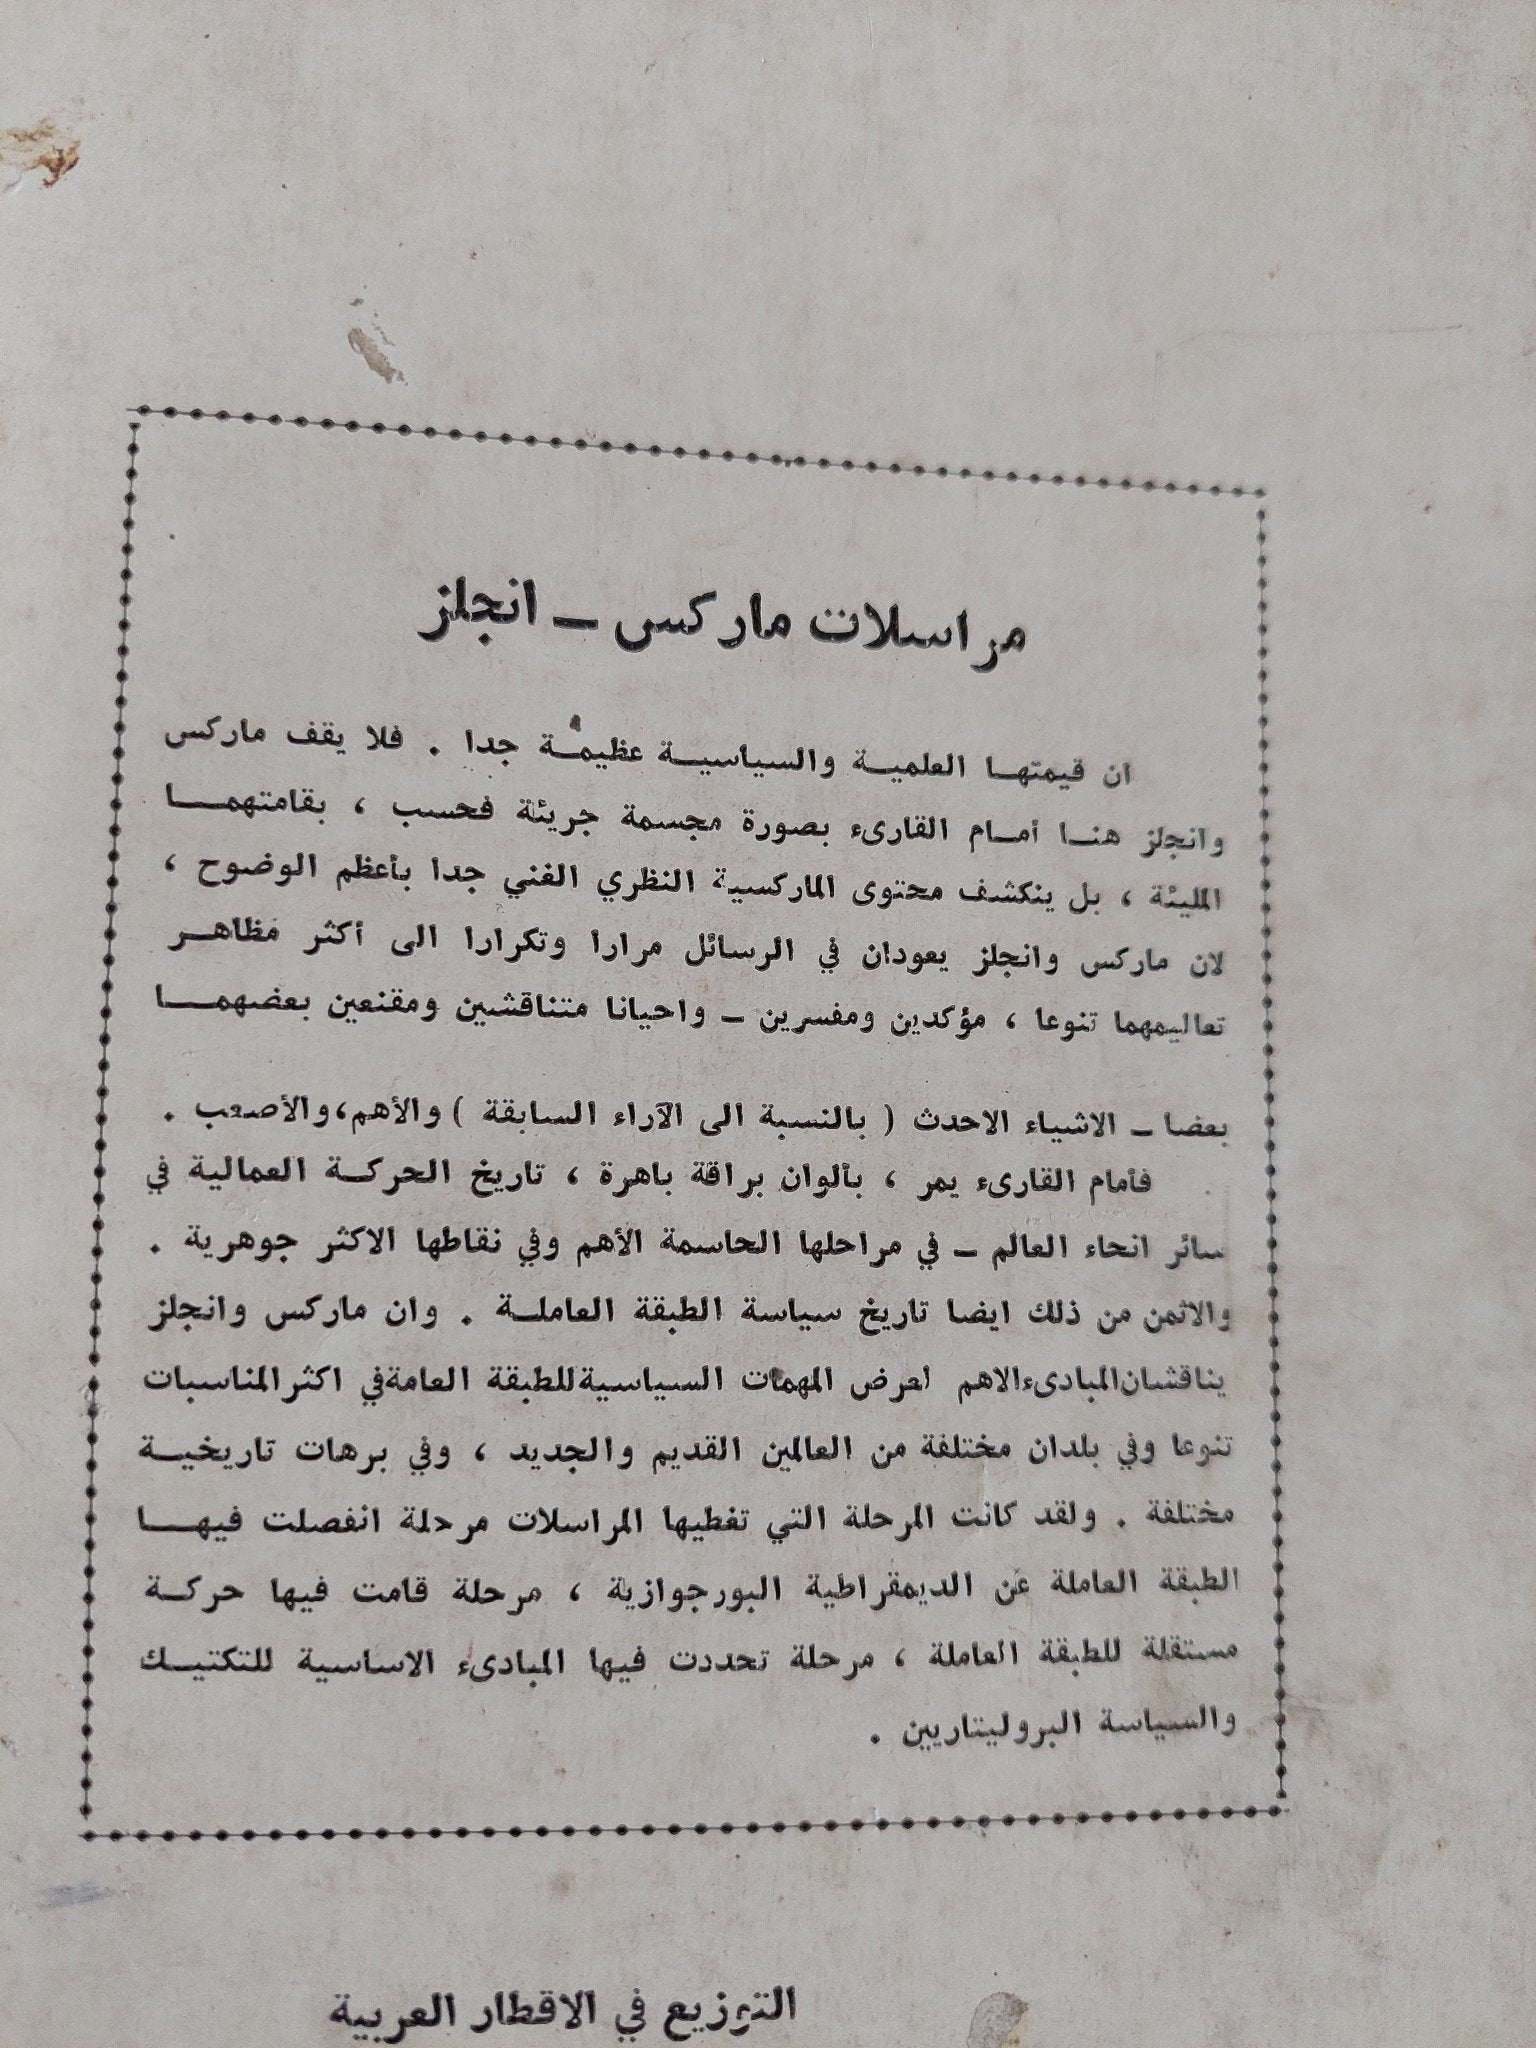 مراسلات ماركس ـ انجلز
ان قيمتها العلمية والسياسية عظيمة جدا . فلا يقف ماركس
وانجلز هنا أمام القارىء بصورة مجسمة جريئة فحسب ، بقامتهما
المليئة ، بل ينكشف محتوى الماركسية النظري الغني جدا بأعظم الوضوح ،
لان ماركس وانجلز يعودان في الرسائل مرارا وتكرارا الى أكثر مظاهر
تعاليمهما تنوعا ، مؤكدين ومفسرين ـ واحيانا متناقشين ومقنعين بعضهما
بعضا ـ الاشياء الاحدث ( بالنسبة الى الآراء السابقة ) والأهم،والأصعب .
فأمام القارىء يمر ، بألوان براقة باهرة ، تاريخ الحركة العمالية في
سائر انحاء العالم ـ في مراحلها الحاسمة الأهم وفي نقاطها الاكثر جوهرية .
والاثمن من ذلك ايضا تاريخ سياسة الطبقة العاملة . وان ماركس وانجلز
يناقشان المبادىء الاهم لعرض المهمات السياسية للطبقة العامة في اكثر المناسبات
تنوعا وفي بلدان مختلفة من العالمين القديم والجديد ، وفي برهات تاريخية
مختلفة . ولقد كانت المرحلة التي تغطيها المراسلات مرحلة انفصلت فيها
الطبقة العاملة عن الديمقراطية البورجوازية ، مرحلة قامت فيها حركة
مستقلة للطبقة العاملة ، مرحلة تحددت فيها المبادىء الاساسية للتكتيك
والسياسة البروليتاريين .
التوزيع في الاقطار العربية